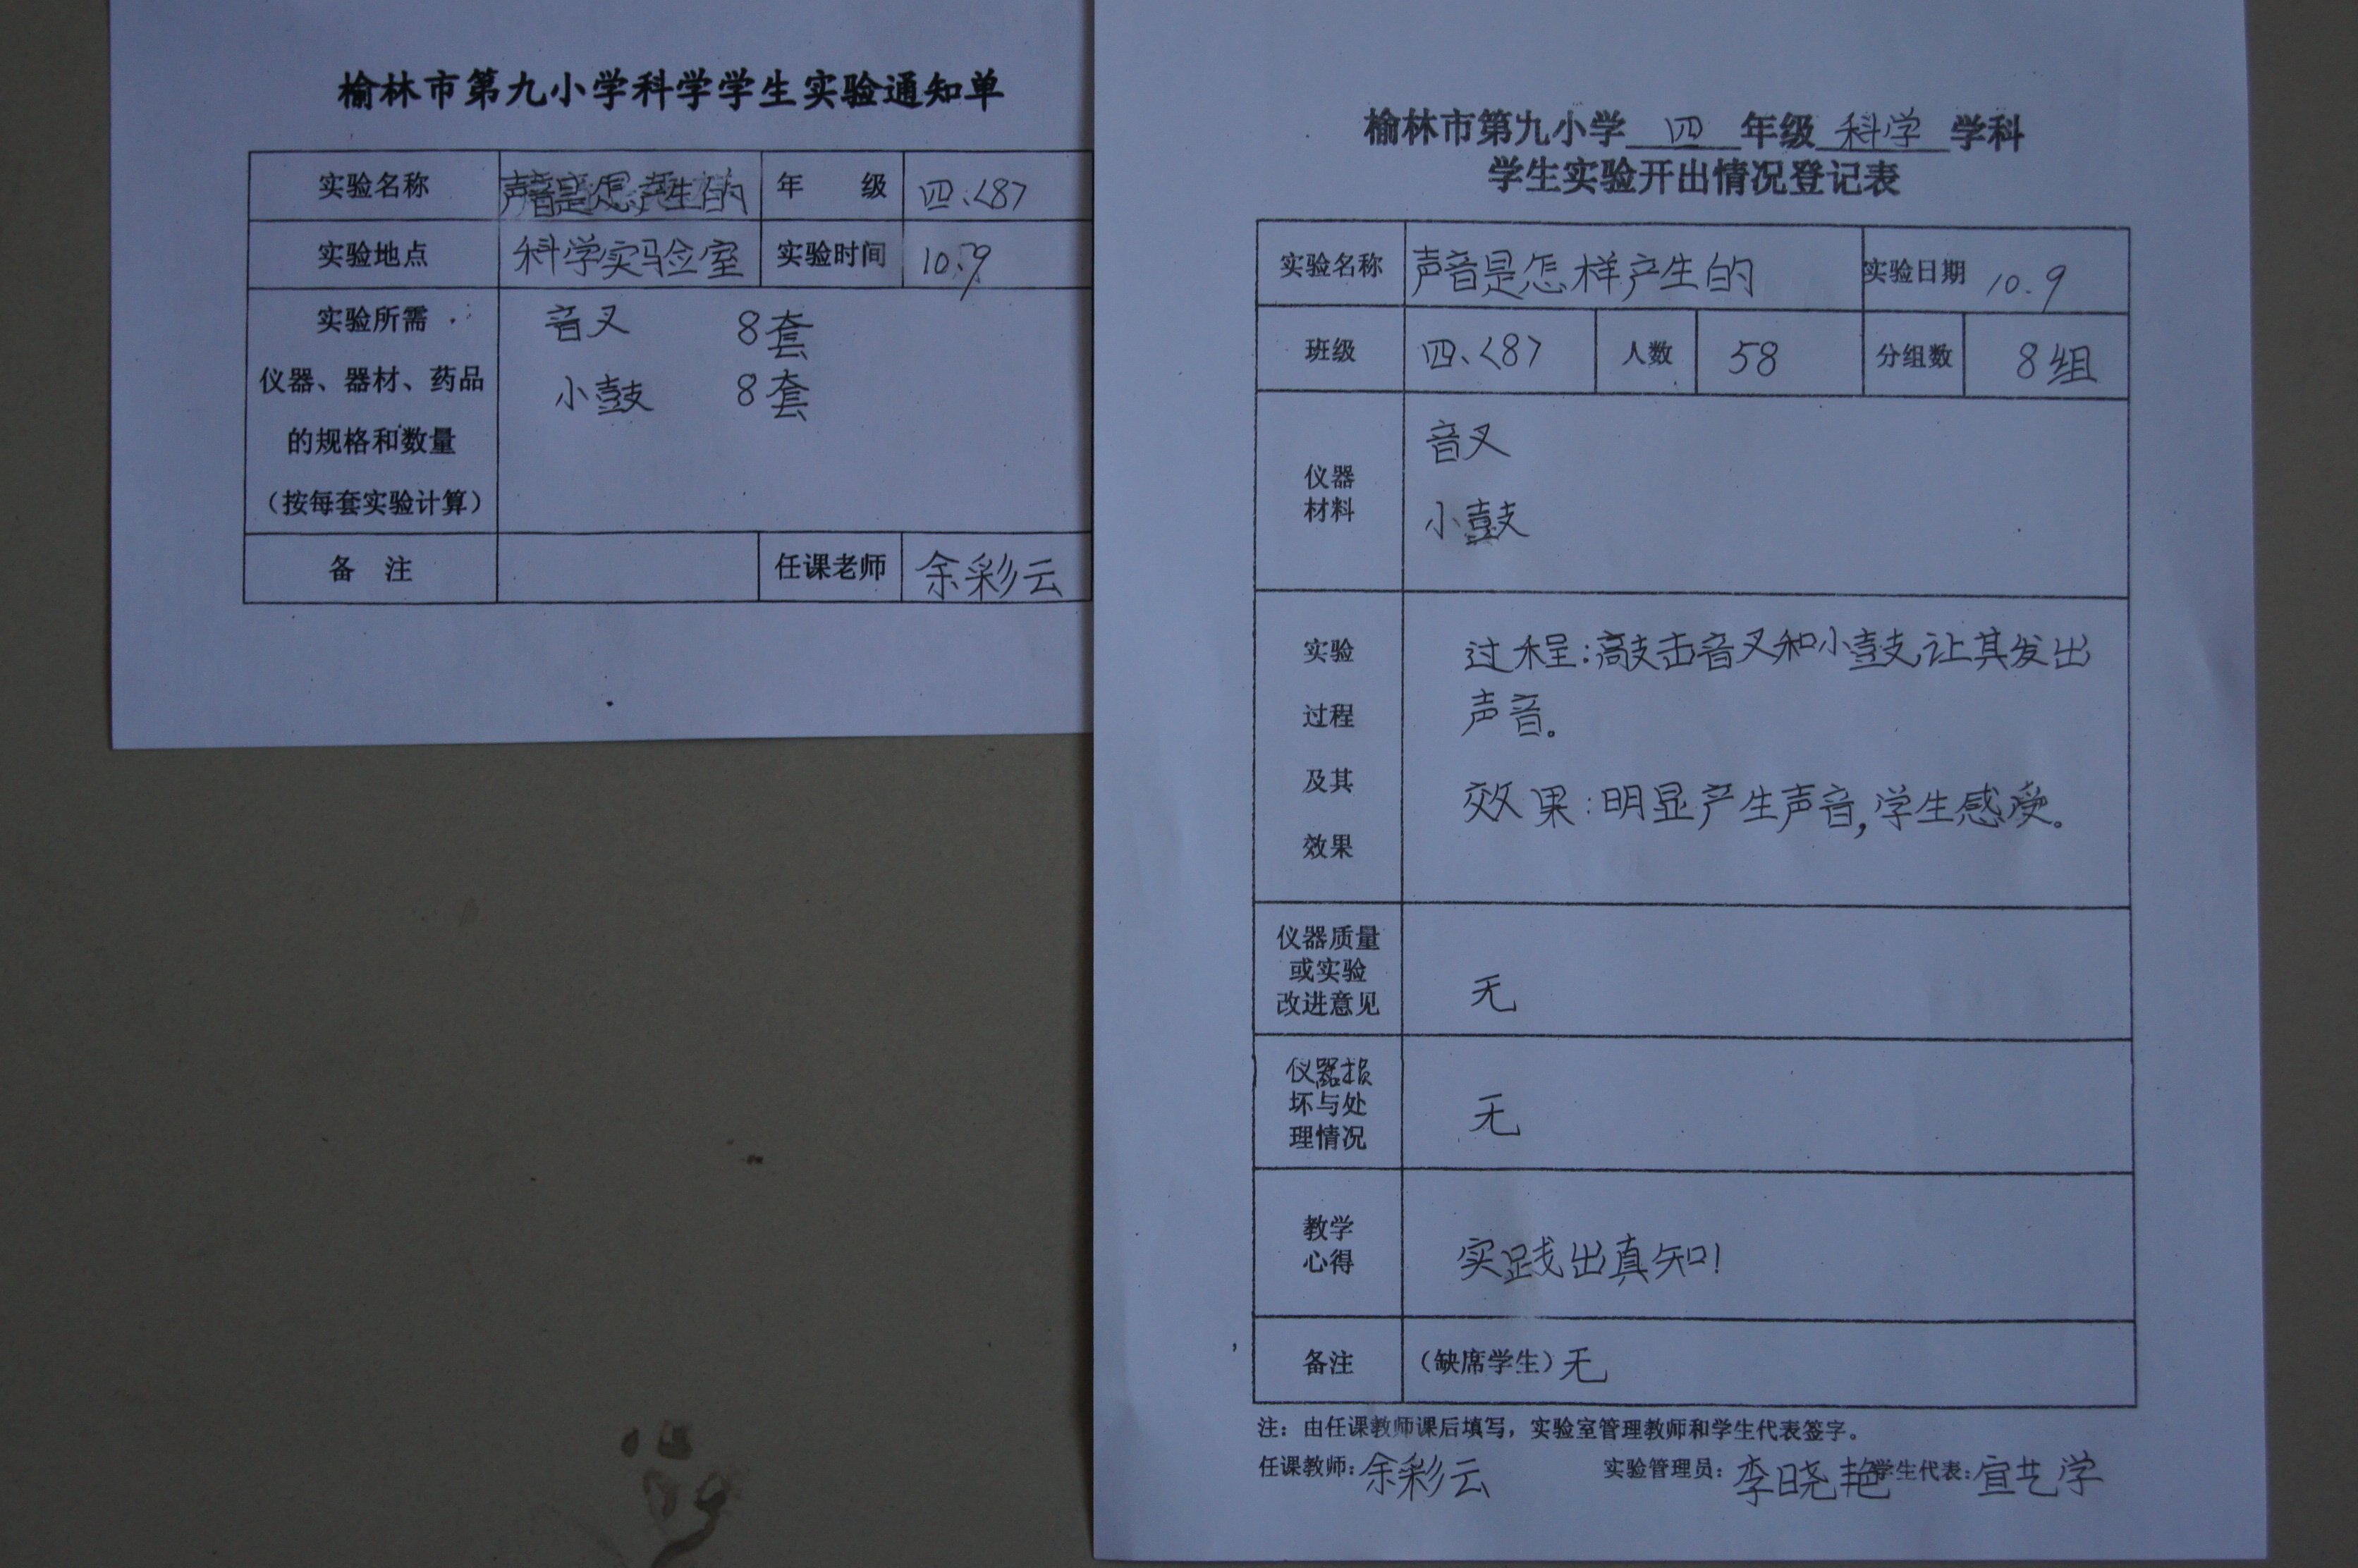 榆林市第九小学科学学生实验通知单
实验名称 声音是怎产生的 年 级 四、<8>
实验地点 科学实验室 实验时间 10.9
实验所需
仪器、器材、药品
的规格和数量
（按每套实验计算）
音叉 8套
小鼓 8套
备 注 任课老师 余彩云
榆林市第九小学 四 年级 科学 学科
学生实验开出情况登记表
实验名称 声音是怎样产生的 实验日期 10.9
班级 四、<8> 人数 58 分组数 8组
仪器
材料
音叉
小鼓
实验
过程
及其
效果
过程:敲击音叉和小鼓让其发出
声音。
效果:明显产生声音,学生感受。
仪器质量
或实验
改进意见
无
仪器损
坏与处
理情况
无
教学
心得
实践出真知!
备注 （缺席学生）无
注：由任课教师课后填写，实验室管理教师和学生代表签字。
任课教师:余彩云 实验管理员:李晓艳 学生代表:宣艺学